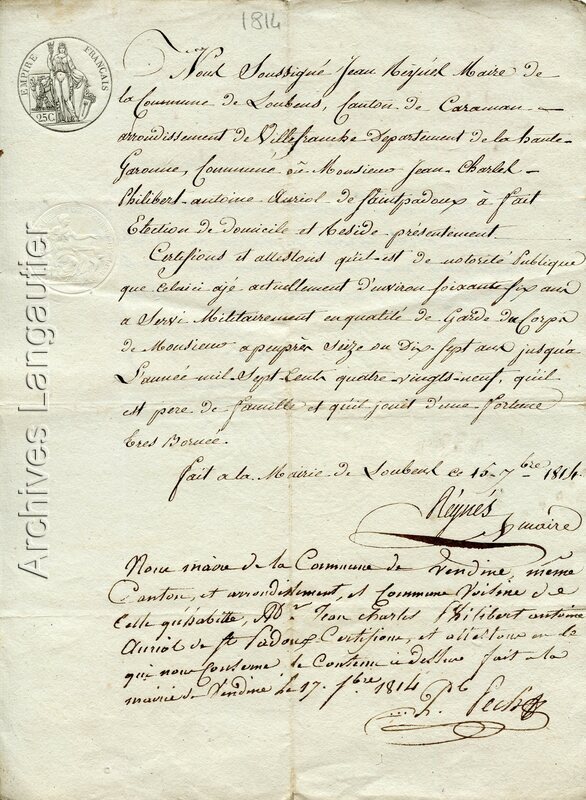 1814
EMPIRE FRANÇAIS
25C
Nous Soussigné Jean Maire de
la Commune de Loubens, Canton de Caraman
arrondissement de Villefranche Departement de la haute
Garonne, Commune où Monsieur Jean Charles
Philibert antoine Auriol de Saint padoux à fait
Election de domicile et Reside présentement
Certifions et attestons qu'il est de notorieté Publique
que Celuici ajé actuellement d'environ soixante six ans
a Servi Militairement en qualité de Garde du Corps
de Monsieur apeuprès Seize ou Dix Sept ans jusqu'a
L'année mil Sept Cents quatre-vingts-neuf, qu'il
est pere de famille et qu'il jouit d'une fortune
tres Bornée.
fait a la Mairie de Loubens ce 15 7bre 1814.
Reynés
maire
Nous maire de la Commune de Vendine, même
Canton, et arrondissement, et Commune Voisine de
Celle qu'habitte, Mr Jean charles Philibert antoine
Auriol de St Padoux Certifions, et attestons en ce
qui nous Conserne le Contenu cidessus fait a la
mairie de Vendine le 17. 7bre 1814
Archives Langautier